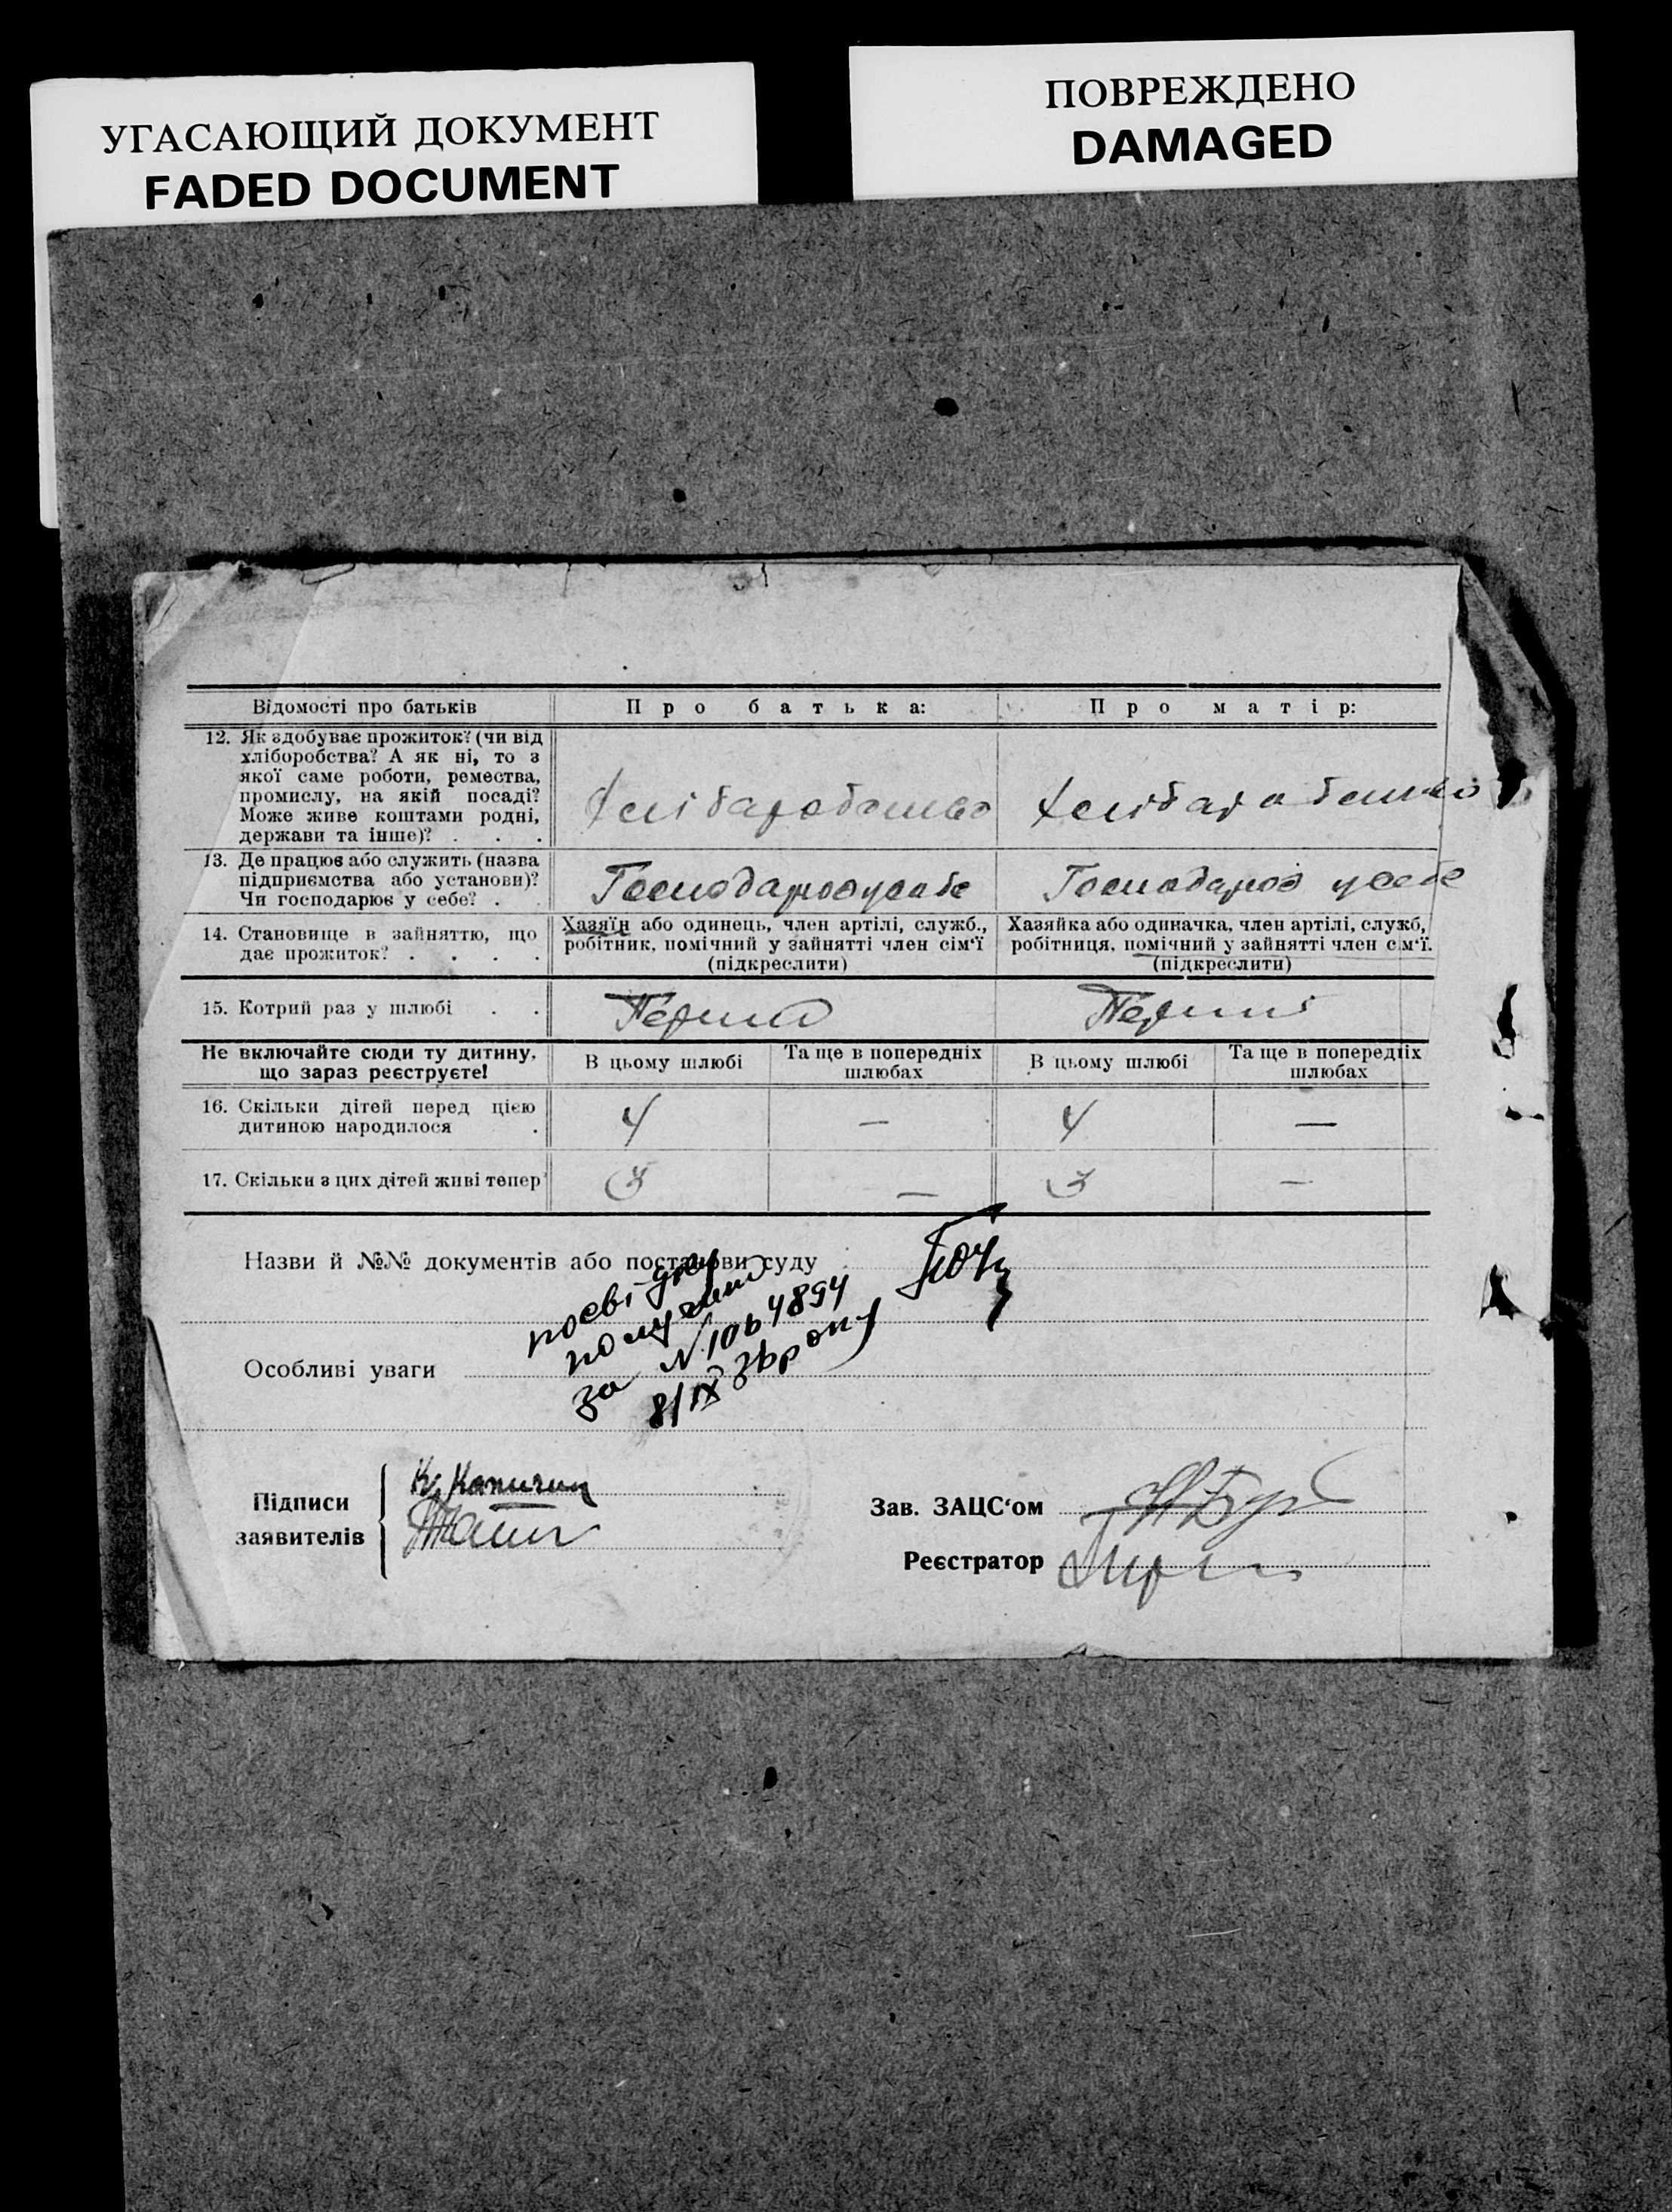 УГАСАЮЩИЙ ДОКУМЕНТ
FADED DOCUMENT
ПОВРЕЖДЕНО
DAMAGED
Відомості про батьків
Про батька:
Про матір:
12. Як здобуває прожиток? (чи від
хліборобства? А як ні, то з
якої саме роботи, ремества,
промислу, на якій посаді?
Може живе коштами родні,
держави та інше)? . . .
Хлібаробство
Хлібаробство
13. Де працює або служить (назва
підприємства або установи)?
Чи господарює у себе? .
Господарює у себе
Господарює у себе
14. Становище в зайняттю, що
дає прожиток? . . . .
Хазяїн або одинець, член артілі, служб.,
робітник, помічний у зайнятті член сім'ї
(підкреслити)
Хазяйка або одиначка, член артілі, служб,
робітниця, помічний у зайнятті член сім'ї.
(підкреслити)
15. Котрий раз у шлюбі . .
Перший
Перший
Не включайте сюди ту дитину,
що зараз реєструєте!
В цьому шлюбі
Та ще в попередніх
шлюбах
В цьому шлюбі
Та ще в попередніх
шлюбах
16. Скільки дітей перед цією
дитиною народилося .
4
—
4
—
17. Скільки з цих дітей живі тепер
3
—
3
—
Назви й №№ документів або постанови суду
за N 1064894
8/IX
Особливі уваги
Підписи
заявителів
Зав. ЗАЦС'ом
Реєстратор